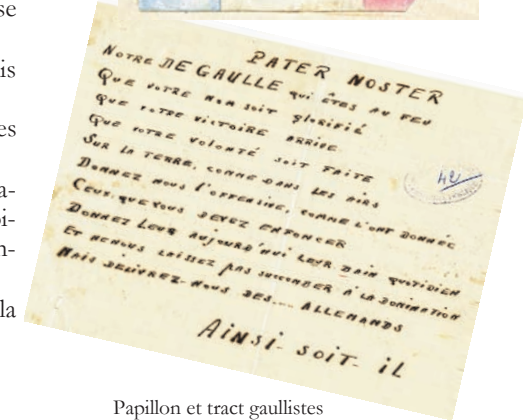 se
is
es
a-
oi-
n-
la
PATER NOSTER
NOTRE DE GAULLE QUI ÊTES AU FEU
QUE VOTRE NOM SOIT GLORIFIÉ
QUE VOTRE VICTOIRE ARRIVE
QUE VOTRE VOLONTÉ SOIT FAITE
SUR LA TERRE, COMME DANS LES AIRS
DONNEZ NOUS L'OFFENSIVE, COMME L'ONT DONNÉE
CEUX, QUE VOUS DEVEZ ENFONCER
DONNEZ LEUR AUJOURD'HUI LEUR BAIN QUOTIDIEN
ET NE NOUS LAISSEZ PAS SUCCOMBER À LA DOMINATION
MAIS DÉLIVREZ-NOUS DES.... ALLEMANDS
AINSI-SOIT-IL
Papillon et tract gaullistes